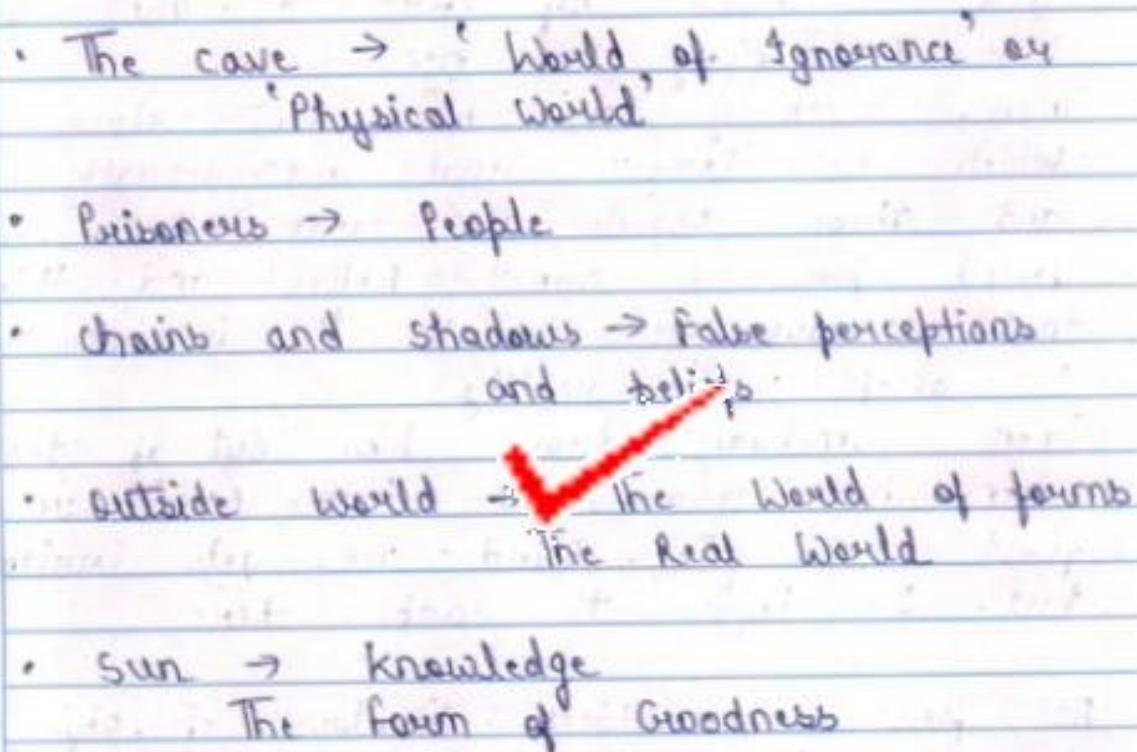 • The cave → 'World of Ignorance' or
'Physical World'
• Prisoners → People
• chains and shadows → False perceptions
and beliefs
• outside world → The World of forms
The Real World
• Sun → knowledge
The form of Goodness